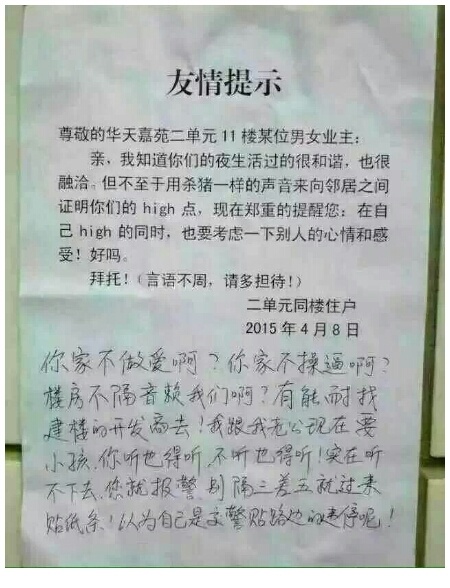 友情提示
尊敬的华天嘉苑二单元11楼某位男女业主:
亲,我知道你们的夜生活过的很和谐,也很
融洽。但不至于用杀猪一样的声音来向邻居之间
证明你们的 high 点,现在郑重的提醒您:在自
己 high 的同时,也要考虑一下别人的心情和感
受!好吗。
拜托!(言语不周,请多担待!)
二单元同楼住户
2015 年 4 月 8 日
你家不做爱啊?你家不操逼啊?
楼房不隔音赖我们啊?有能耐找
建楼的开发商去!我跟我老公现在要
小孩、你听也得听、不听也得听!实在听
不下去、您就报警、别隔三差五就过来
贴纸条!认为自己是交警贴路边的违停呢!